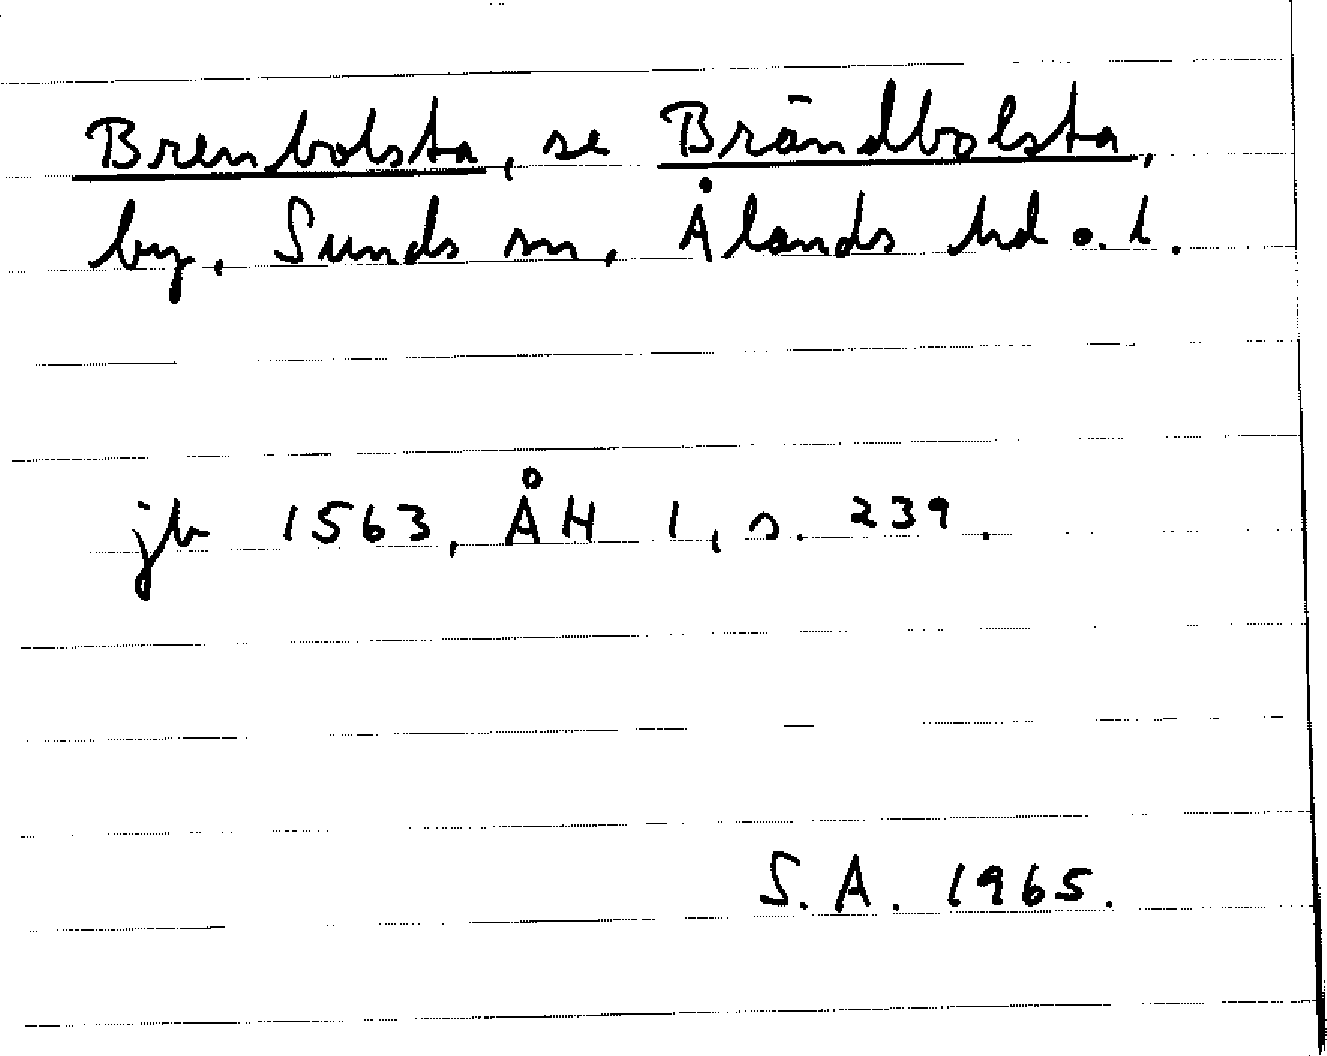 Brenbolsta, se Brändbolsta,
by, Sunds sn, Ålands hd o. l.
jb 1563, ÅH 1, s. 239.
S.A. 1965.